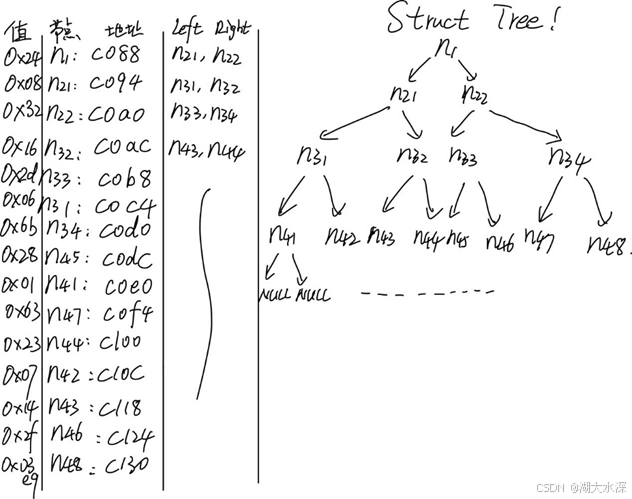 值 节点 地址 Left Right
0x24 n1: c088 n21, n22
0x08 n21: c094 n31, n32
0x32 n22: c0a0 n33, n34
0x16 n32: c0ac n43, n44
0x2d n33: c0b8
0x06 n31: c0c4
0x6b n34: c0d0
0x28 n45: c0dc
0x01 n41: c0e0
0x63 n47: c0f4
0x23 n44: c100
0x07 n42: c10c
0x14 n43: c118
0x2f n46: c124
0x03e9 n48: c130
Struct Tree!
n1
n21 n22
n31 n32 n33 n34
n41 n42 n43 n44 n45 n46 n47 n48.
NULL NULL
CSDN @湖大水深